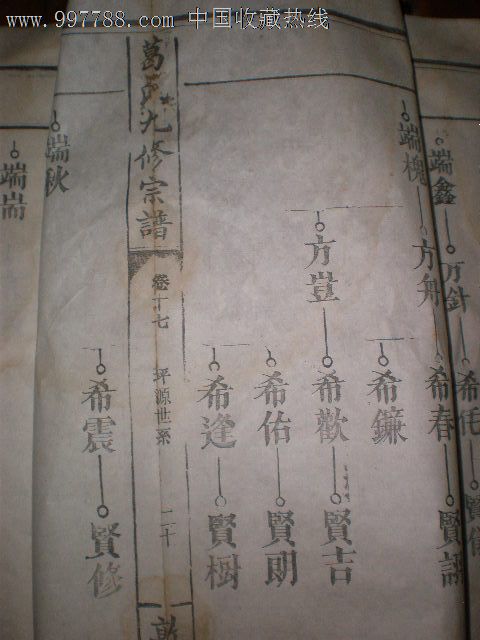 www.997788.com 中国收藏热线
端鑫
万針
希㐌
端槐
方舟
希春
賢語
希鐮
方豈
希歡
賢吉
希佑
賢朗
希逢
賢樹
九修宗譜
卷十七
坪源世系
二十
端秋
希震
賢修
端耑